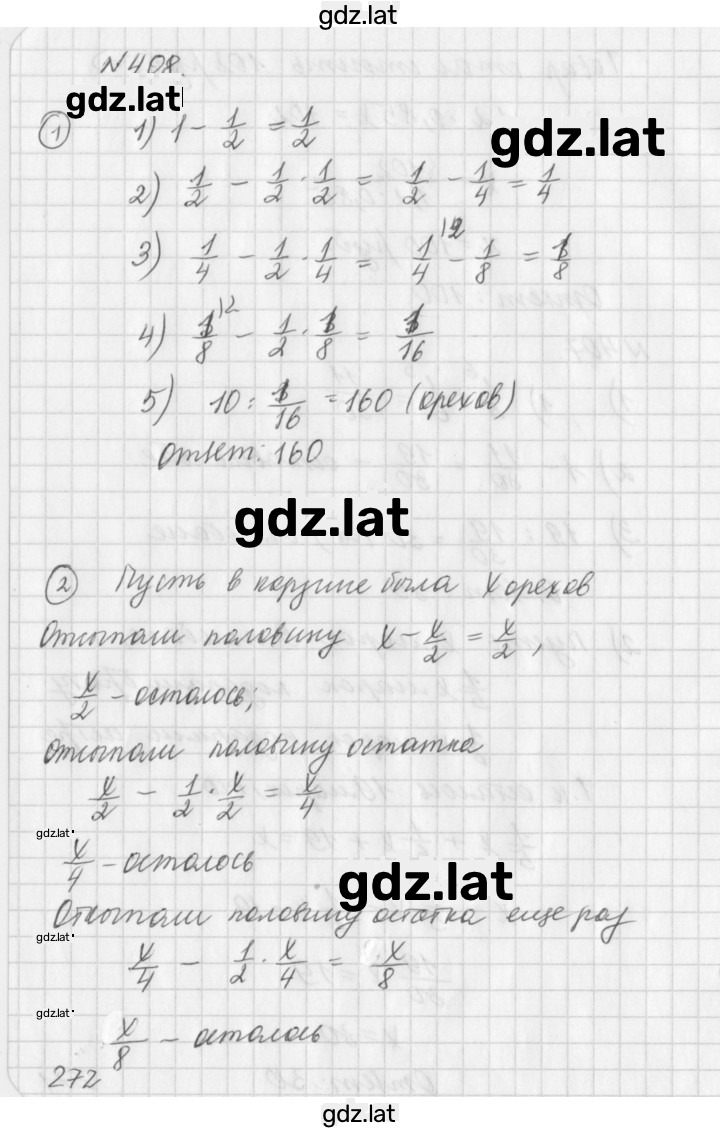 gdz.lat
№408.
gdz.lat
① 1) 1 - 1/2 = 1/2
gdz.lat
2) 1/2 - 1/2 · 1/2 = 1/2 - 1/4 = 1/4
3) 1/4 - 1/2 · 1/4 = 1/4^{12} - 1/8 = 1/8
4) 1/8^{12} - 1/2 · 1/8 = 1/16
5) 10 : 1/16 = 160 (орехов)
Ответ: 160
gdz.lat
② Пусть в корзине была x орехов
Отсыпали половину x - x/2 = x/2 ,
x/2 - осталось;
Отсыпали половину остатка
x/2 - 1/2 · x/2 = x/4
gdz.lat
x/4 - осталось
gdz.lat
Отсыпали половину остатка еще раз
gdz.lat
x/4 - 1/2 · x/4 = x/8
gdz.lat
x/8 - осталось
272
gdz.lat